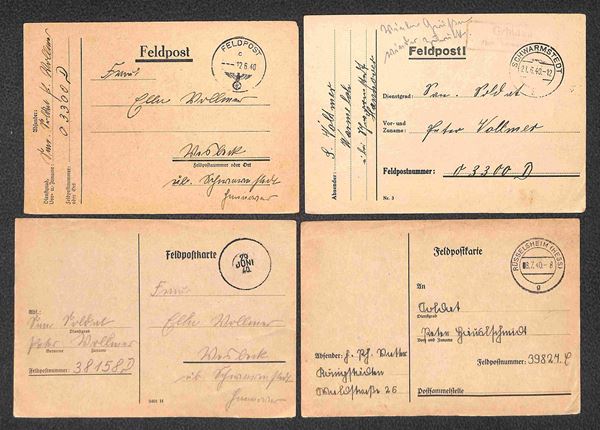 Feldpost
FELDPOST
c
12.6.40
Frau
Elln Wollmer
Wesbeck
Feldpostnummer oder Ort
üb. Schwarmstedt
Hannover
Absender:
San. Soldat P. Wollmer
Dienstgrad,
Vor- u. Zuname
03300D
Feldpostnummer:
oder Ort
Feldpost!
SCHWARMSTEDT
21.6.40.-12
Dienstgrad:
San. Soldat
Vor- und
Zuname:
Peter Vollmer
Feldpostnummer:
03300D
Absender:
Hannover
Nr. 3
Feldpostkarte
JUNI
40
Frau
Elln Wollmer
Wesbeck
üb. Schwarmstedt
Hannover
Abs.:
San. Soldat
Dienstgrad
Peter Wollmer
Vorname Zuname
Feldpostnummer: 38158D
Feldpostkarte
RÜSSELSHEIM (HESS)
8.7.40.-8
g
An
Soldat
Dienstgrad
Peter
Vor- und Zuname
Feldpostnummer: 39824
Postsammelstelle
Absender:
Königstädten
Waldstraße 26